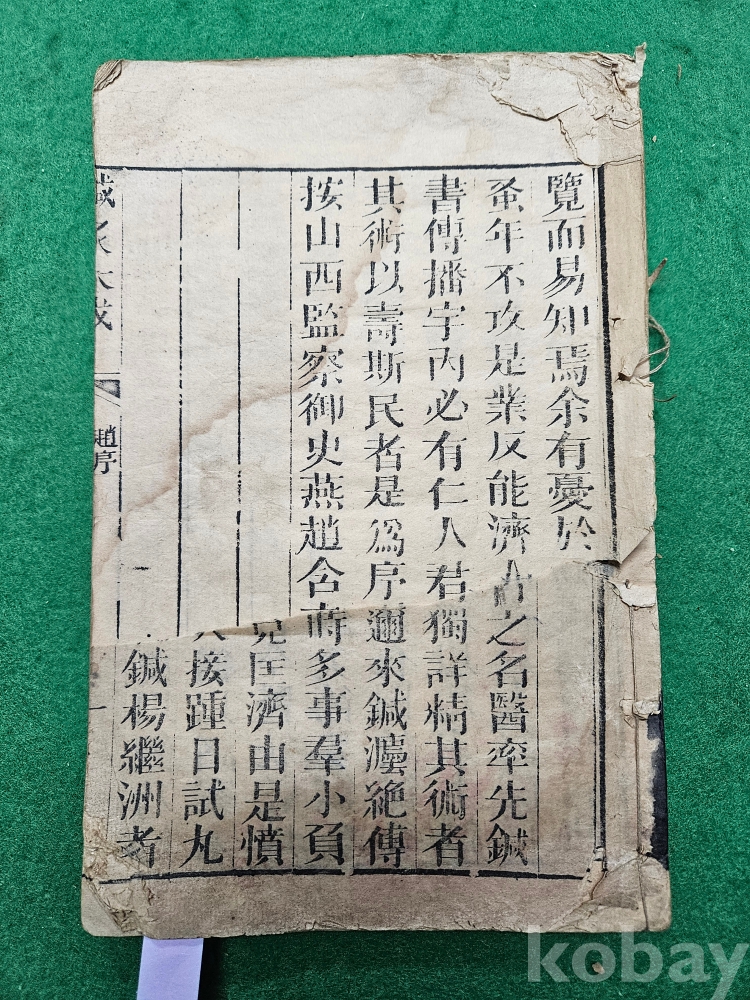 覽而易知焉余有憂於
蚤年不攻是業反能濟古之名醫率先鍼
書傳播宇內必有仁人君獨詳精其術者
其術以壽斯民者是爲序邇來鍼灋絕傳
按山西監察御史燕趙含多事羣小負
匡濟由是憤
接踵日試丸
鍼楊繼洲者
鍼灸大成
趙序
一
kobay